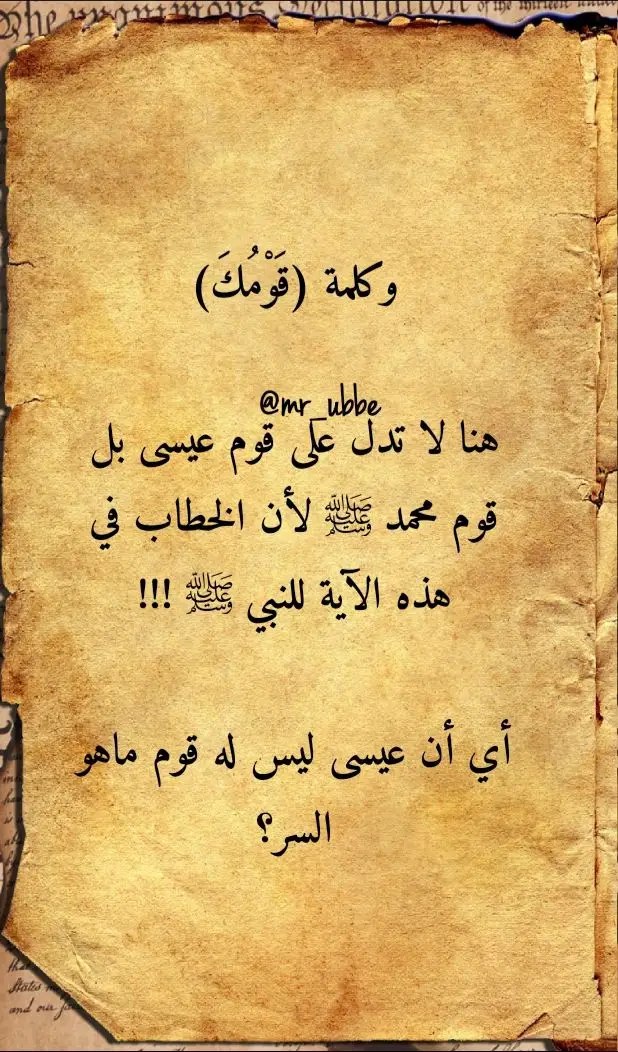 The unanimous Declaration of the thirteen united
وكلمة (قَوْمُكَ)
@mr_ubbe
هنا لا تدل على قوم عيسى بل
قوم محمد ﷺ لأن الخطاب في
هذه الآية للنبي ﷺ !!!
أي أن عيسى ليس له قوم ماهو
السر؟
States
and our